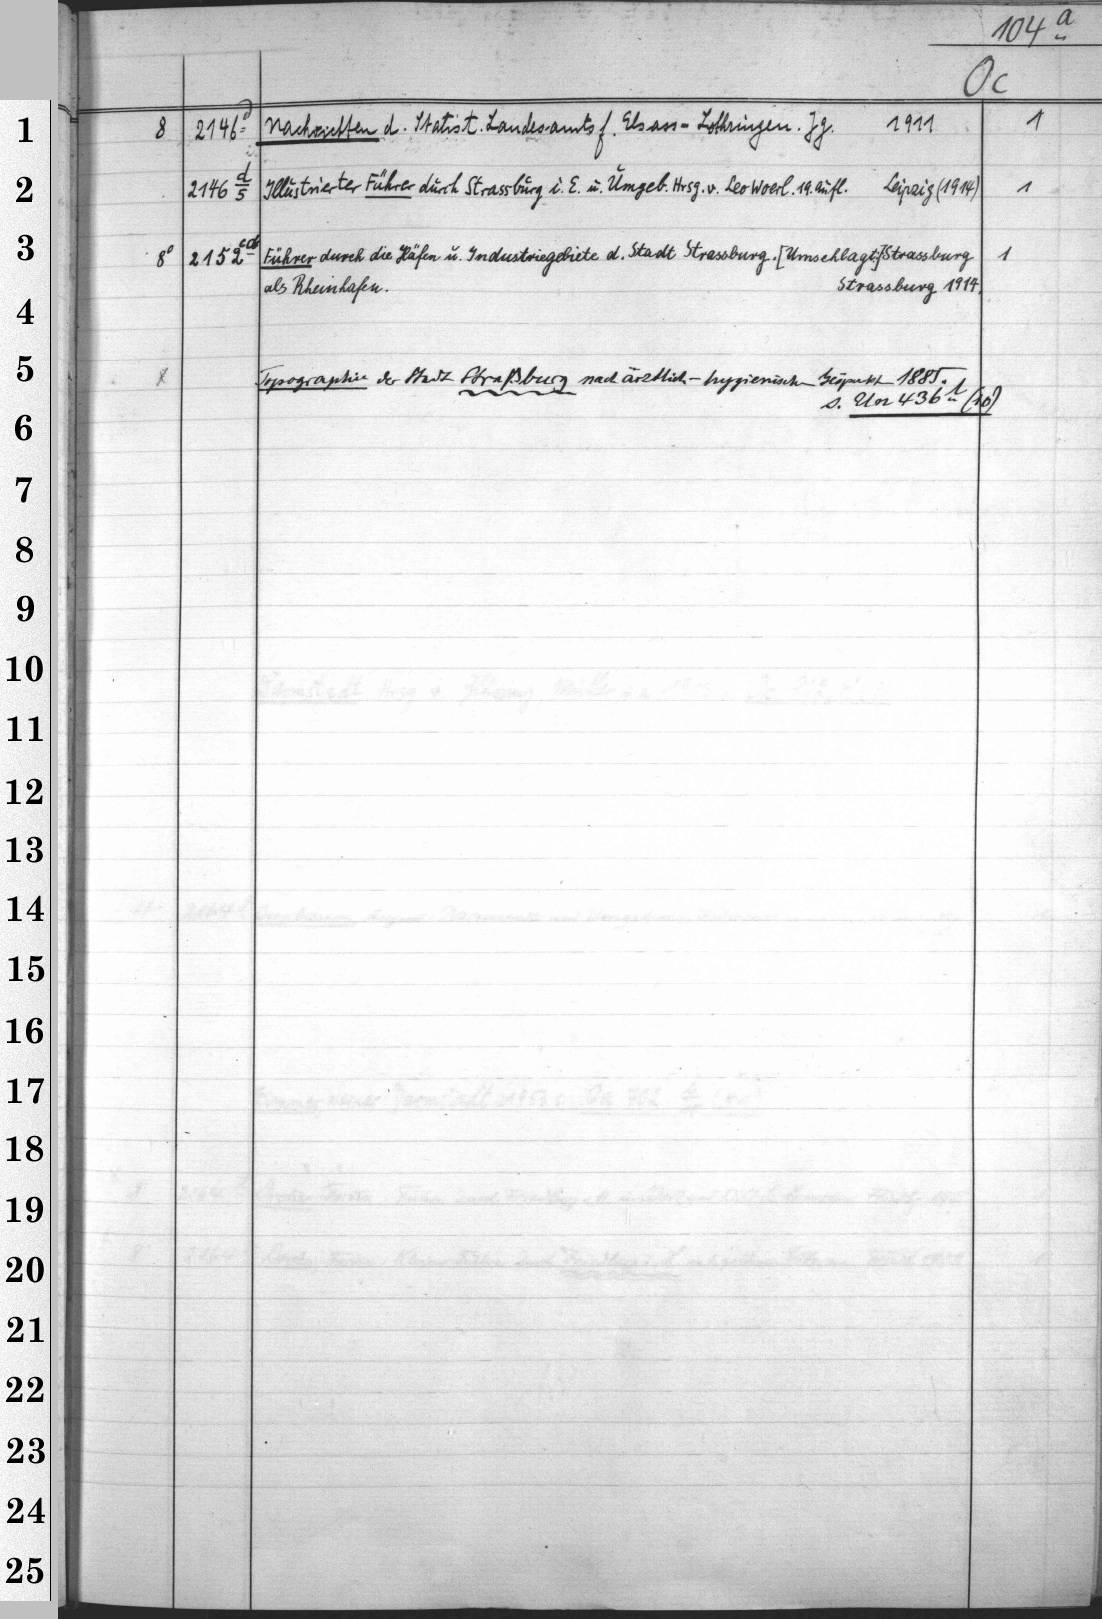 104 a
Oc
1 8 2146 d Nachrichten d. Statist. Landesamts f. Elsass-Lothringen. Jg. 1911 1
2 2146 d/5 Illustrierter Führer durch Strassburg i. E. u. Umgeb. Hrsg. v. Leo Woerl. 19. Aufl. Leipzig (1914) 1
3 8° 2152 Führer durch die Häfen u. Industriegebiete d. Stadt Strassburg. [Umschlagt.:] Strassburg 1
als Rheinhafen. Strassburg 1914.
4
5 Topographie der Stadt Straßburg nach ärztlich-hygienischen 1885.
s. 436 (10)
6
7
8
9
10
11
12
13
14
15
16
17
18
19
20
21
22
23
24
25